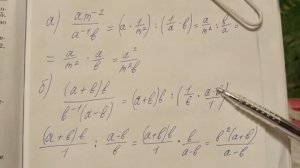 а) am⁻² / a⁻¹b = (a · 1/m²) : (1/a · b) = a/m² : b/a =
= a/m² · a/b = a²/m²b
б) (a+b)b / b⁻¹(a-b) = (a+b)b : (1/b · a-b/1)
(a+b)b/1 : a-b/b = (a+b)b/1 · b/a-b = b²(a+b)/a-b